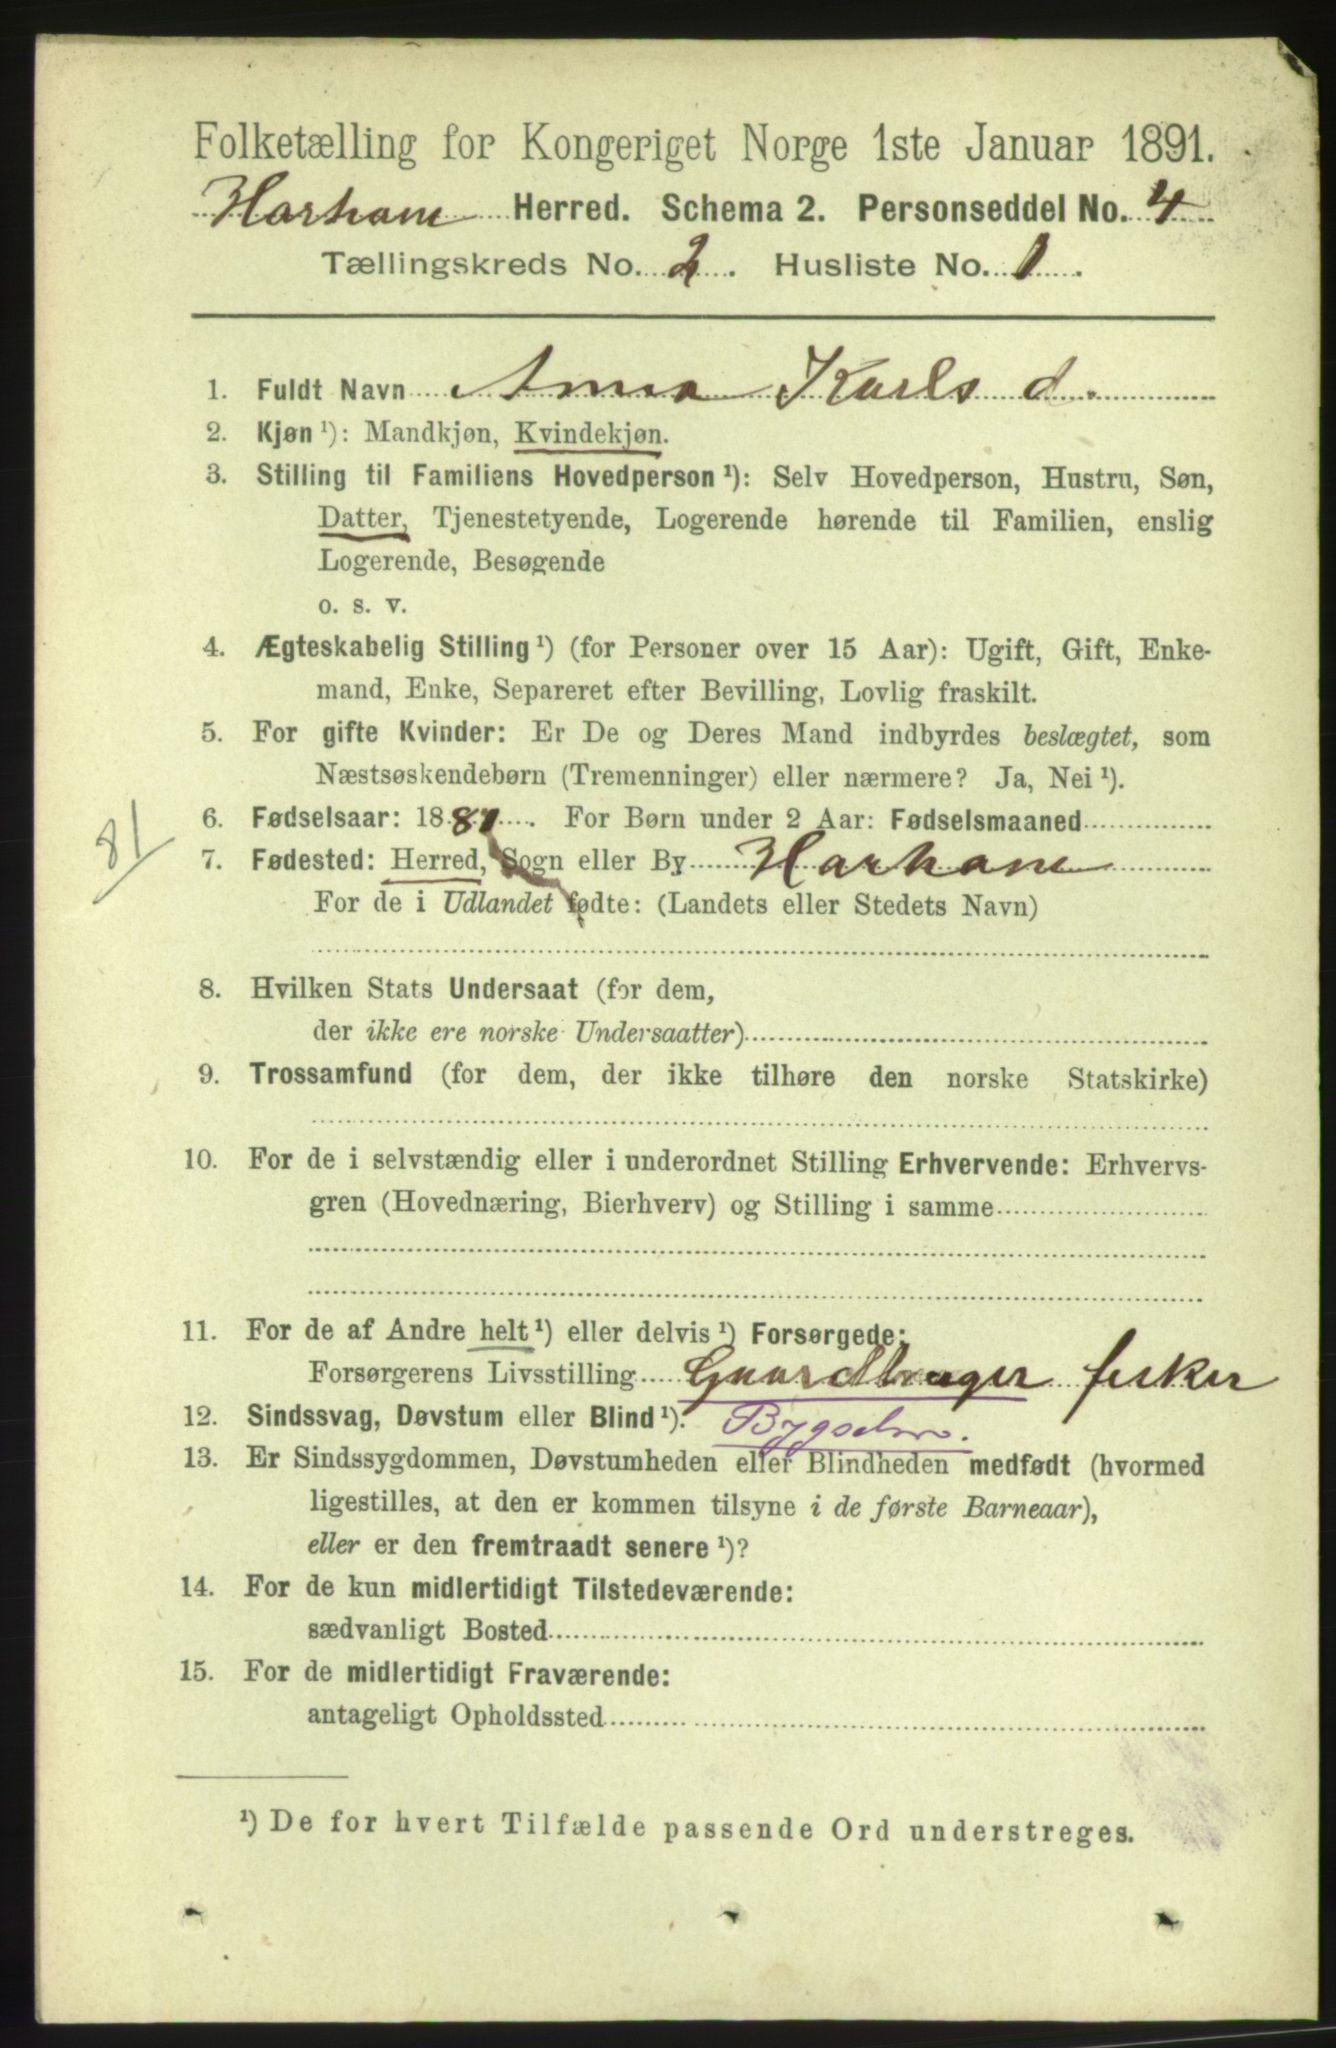 Folketælling for Kongeriget Norge 1ste Januar 1891.
Harham Herred. Schema 2. Personseddel No. 4
Tællingskreds No. 2. Husliste No. 1.
1. Fuldt Navn Anna Karls d.
2. Kjøn ¹): Mandkjøn, Kvindekjøn.
3. Stilling til Familiens Hovedperson ¹): Selv Hovedperson, Hustru, Søn,
Datter, Tjenestetyende, Logerende hørende til Familien, enslig
Logerende, Besøgende
o. s. v.
4. Ægteskabelig Stilling ¹) (for Personer over 15 Aar): Ugift, Gift, Enke-
mand, Enke, Separeret efter Bevilling, Lovlig fraskilt.
5. For gifte Kvinder: Er De og Deres Mand indbyrdes beslægtet, som
Næstsøskendebørn (Tremenninger) eller nærmere? Ja, Nei ¹).
6. Fødselsaar: 1881. For Børn under 2 Aar: Fødselsmaaned
81
7. Fødested: Herred, Sogn eller By Harham
For de i Udlandet fødte: (Landets eller Stedets Navn)
8. Hvilken Stats Undersaat (for dem,
der ikke ere norske Undersaatter)
9. Trossamfund (for dem, der ikke tilhøre den norske Statskirke)
10. For de i selvstændig eller i underordnet Stilling Erhvervende: Erhvervs-
gren (Hovednæring, Bierhverv) og Stilling i samme
11. For de af Andre helt ¹) eller delvis ¹) Forsørgede:
Forsørgerens Livsstilling Gaardbruger fisker
12. Sindssvag, Døvstum eller Blind ¹). Bygselm.
13. Er Sindssygdommen, Døvstumheden eller Blindheden medfødt (hvormed
ligestilles, at den er kommen tilsyne i de første Barneaar),
eller er den fremtraadt senere ¹)?
14. For de kun midlertidigt Tilstedeværende:
sædvanligt Bosted
15. For de midlertidigt Fraværende:
antageligt Opholdssted
¹) De for hvert Tilfælde passende Ord understreges.